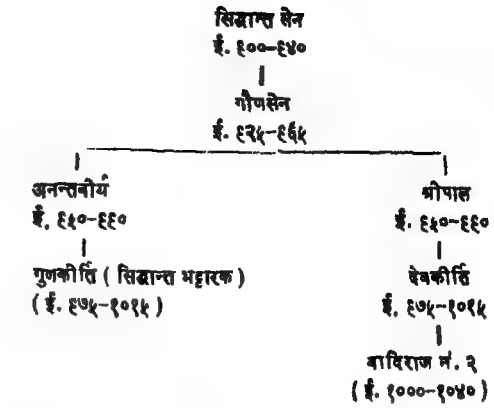 सिद्धान्त सेन
ई. ९००-९४०
गौणसेन
ई. ९२५-९६५
अनन्तवीर्य
ई. ९५०-९९०
गुणकीर्ति ( सिद्धान्त भट्टारक )
( ई. ९७५-१०१५ )
श्रीपाल
ई. ९५०-९९०
देवकीर्ति
ई. ९७५-१०१५
वादिराज नं. २
( ई. १०००-१०४० )